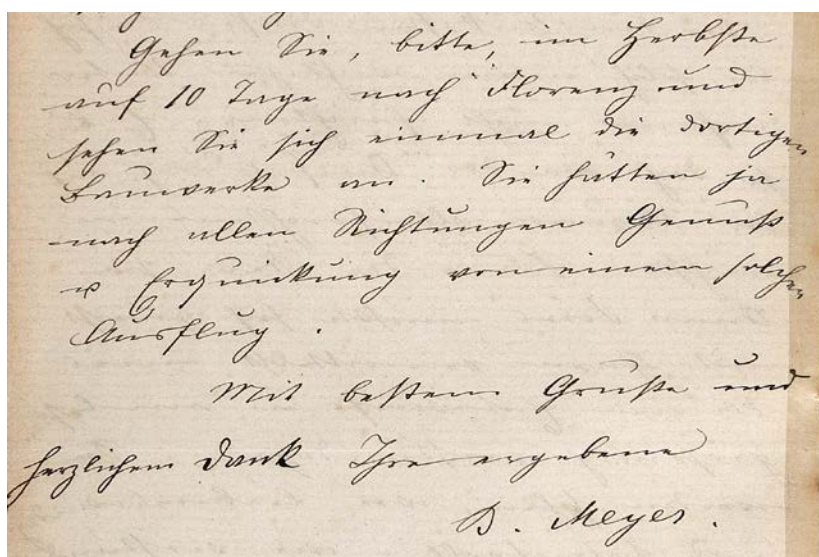 Gehen Sie, bitte, im Herbste
auf 10 Tage nach Florenz und
sehen Sie sich einmal die dortigen
Bauwerke an. Sie hätten ja
nach allen Richtungen Genuß
u Erquickung von einem solchen
Ausflug.
Mit bestem Gruße und
herzlichem Dank Ihre ergebene
B. Meyer.